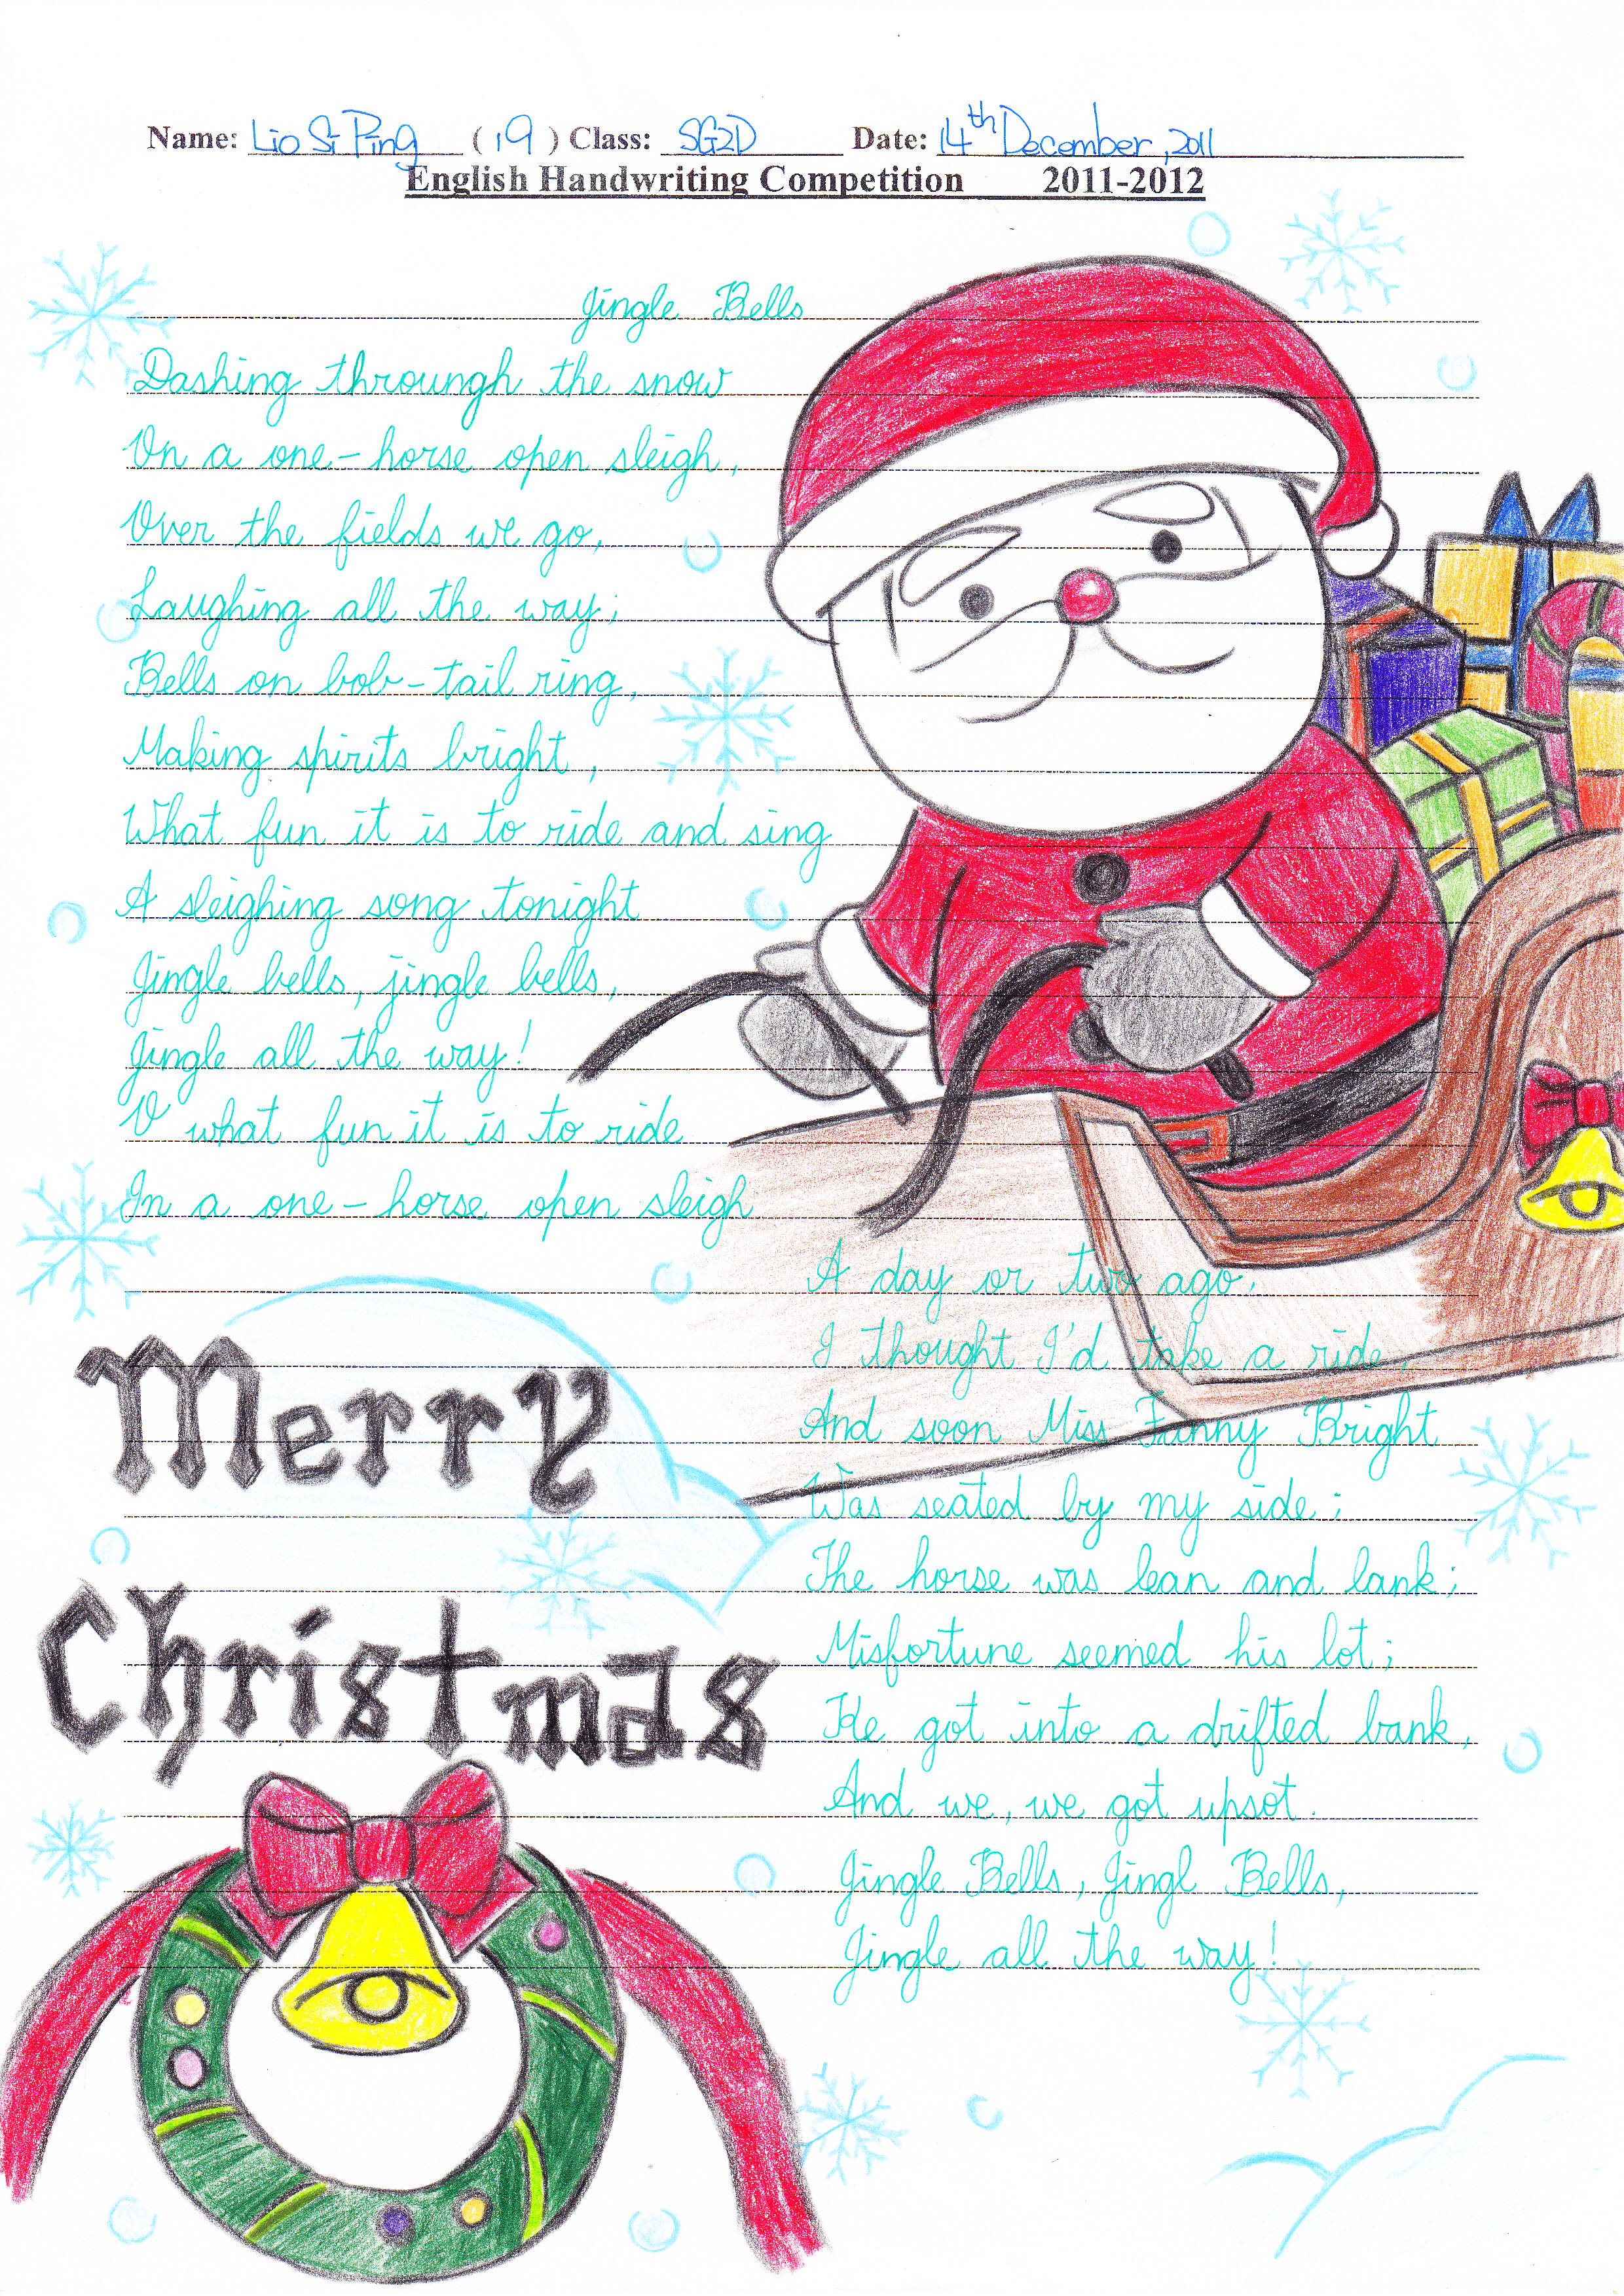 Name: Lio Si Ping ( 19 ) Class: SG2D Date: 14th December, 2011
English Handwriting Competition 2011-2012
Jingle Bells
Dashing throungh the snow
On a one-horse open sleigh,
Over the fields we go,
Laughing all the way;
Bells on bob-tail ring,
Making spirits bright,
What fun it is to ride and sing
A sleighing song tonight
Jingle bells, jingle bells,
Jingle all the way!
O what fun it is to ride
In a one-horse open sleigh
A day or two ago,
I thought I'd take a ride,
And soon Miss Fanny Bright
Was seated by my side;
The horse was lean and lank;
Misfortune seemed his lot;
He got into a drifted bank,
And we, we got upsot.
Jingle Bells, Jingl Bells,
Jingle all the way!
Merry
Christmas